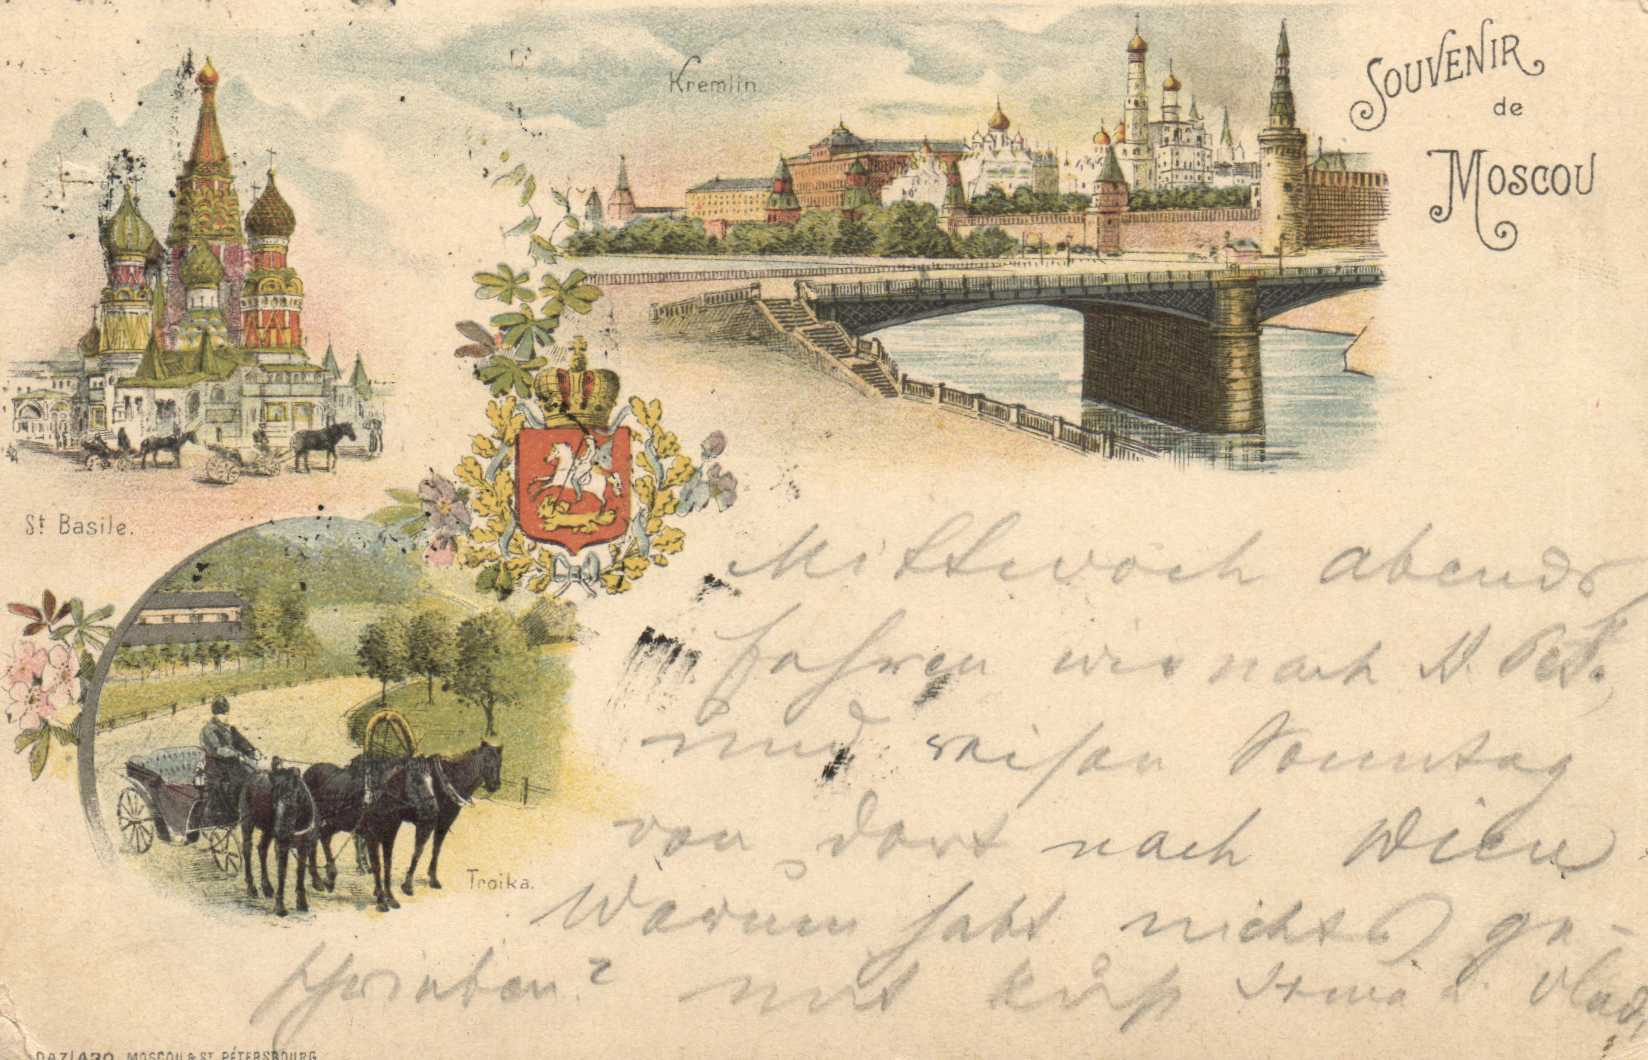 Kremlin
SOUVENIR
de
MOSCOU
St Basile.
Troika.
Mittwoch abends
fahren wir nach St. Pet.,
und reisen Sonntag
von dort nach Wien
Warum habt nichts ge-
schrieben? mit
MOSCOU & ST. PÉTERSBOURG